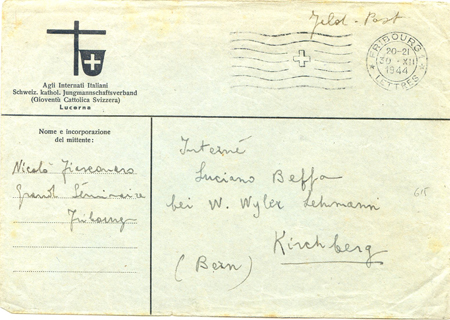 Feld-Post
FRIBOURG 1
20-21
30. XII
1944
LETTRES
Agli Internati Italiani
Schweiz. kathol. Jungmannschaftsverband
(Gioventù Cattolica Svizzera)
Lucerna
Nome e incorporazione
del mittente:
Nicolò
Grand Séminaire
Fribourg
Interné
Luciano Beffa
bei W. Wyler Lehmann
Kirchberg
(Bern)